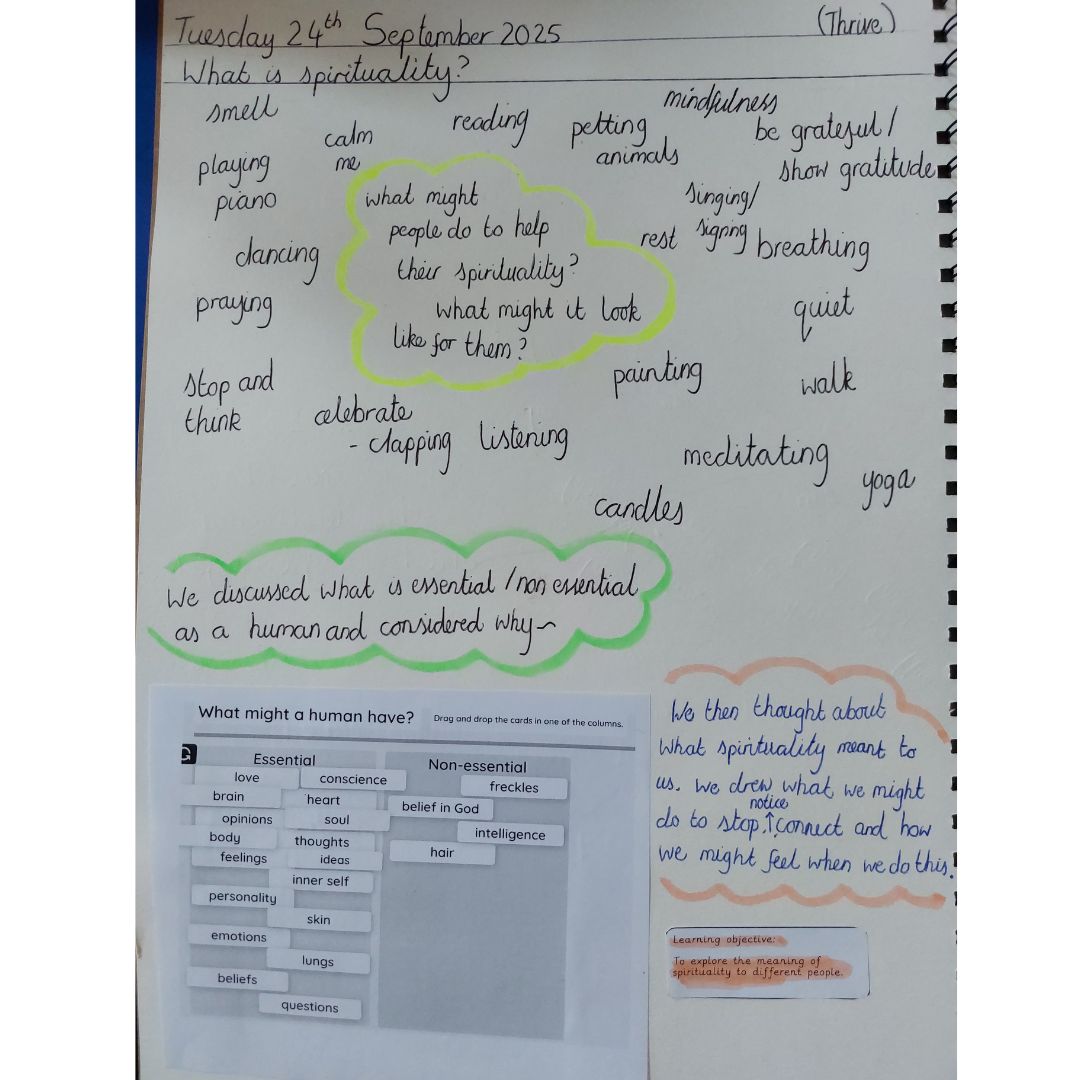 Tuesday 24th September 2025
(Thrive)
What is spirituality?
smell
calm
me
reading
petting
animals
mindfulness
be grateful /
show gratitude
playing
piano
singing/
signing
rest
breathing
dancing
praying
quiet
walk
what might
people do to help
their spirituality?
what might it look
like for them?
stop and
think
celebrate
- clapping
listening
painting
meditating
yoga
candles
We discussed what is essential / non essential
as a human and considered why~
What might a human have?
Drag and drop the cards in one of the columns.
G
Essential
love
conscience
brain
heart
opinions
soul
body
thoughts
feelings
ideas
inner self
personality
skin
emotions
lungs
beliefs
questions
Non-essential
freckles
belief in God
intelligence
hair
We then thought about
what spirituality meant to
us. We drew what we might
notice
do to stop,↑connect and how
we might feel when we do this.
Learning objective:
To explore the meaning of
spirituality to different people.